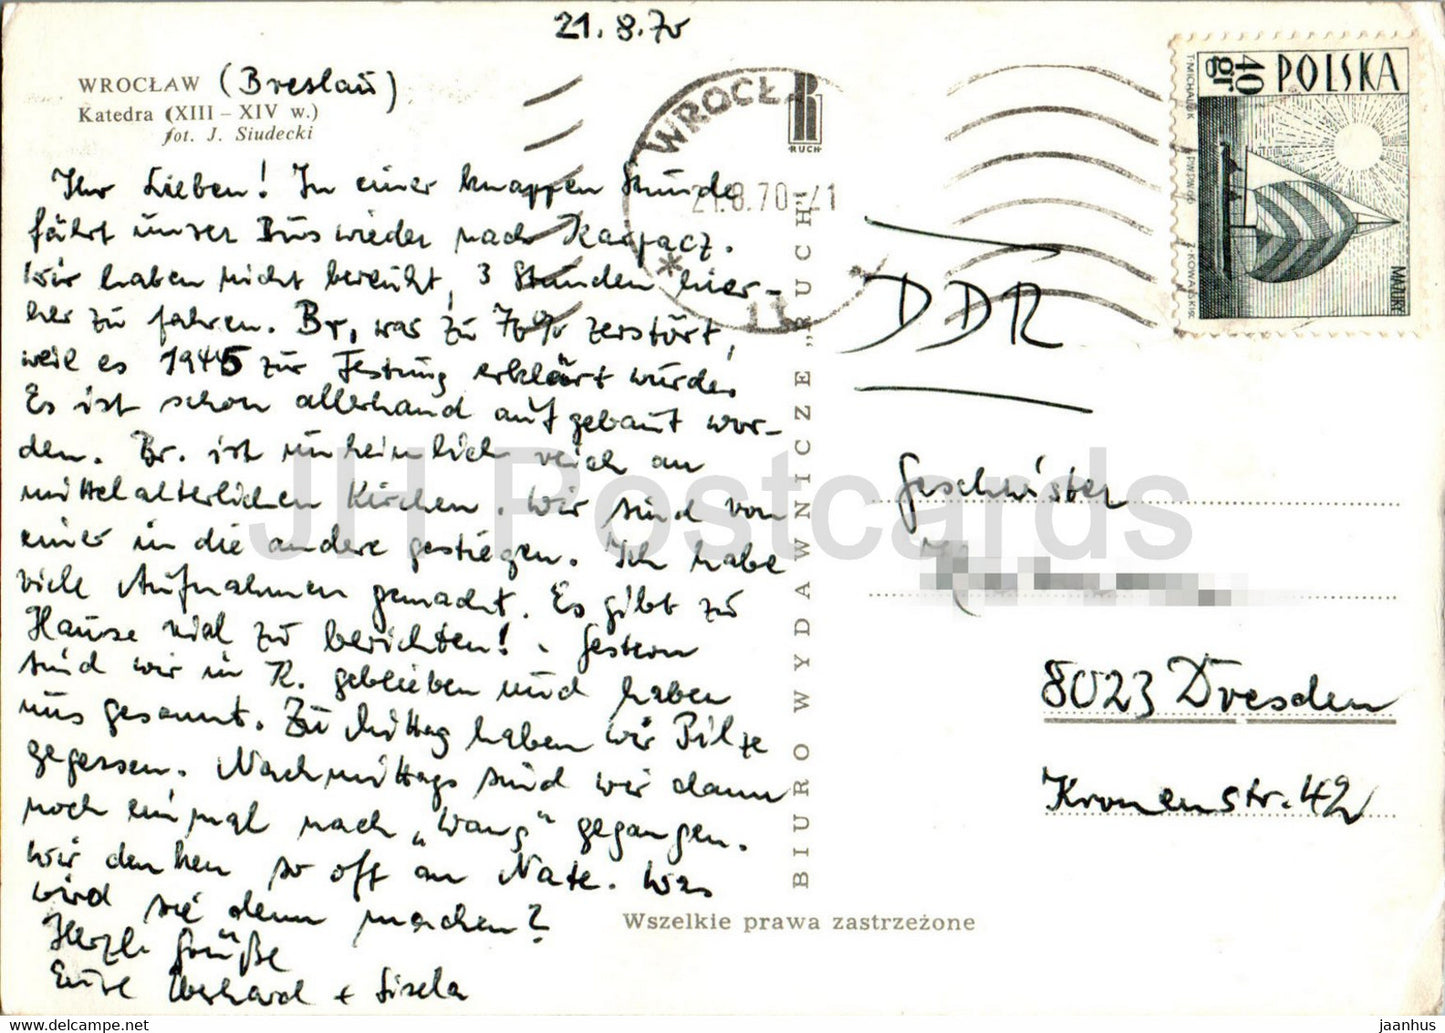 21.8.70
WROCŁAW (Breslau)
Katedra (XIII – XIV w.)
fot. J. Siudecki
Ihr Lieben! In einer knappen Stunde
fährt unser Bus wieder nach Karpacz.
Wir haben nicht bereuht, 3 Stunden hier-
her zu fahren. Br, war zu 70% zerstört,
weil es 1945 zur Festung erklärt wurde.
Es ist schon allerhand aufgebaut wor-
den. Br. ist unheimlich reich an
mittelalterlichen Kirchen. Wir sind von
einer in die andere gestiegen. Ich habe
viele Aufnahmen gemacht. Es gibt zu
Hause viel zu berichten! - Gestern
sind wir in K. geblieben und haben
uns gesonnt. Zu Mittag haben wir Pilze
gegessen. Nachmittags sind wir dann
noch einmal nach „Wang" gegangen.
Wir denken so oft an Nate. Was
wird sie denn machen?
Herzl. Grüße
Eure Eberhard + Gisela
WROCŁ
21.8.70-21
11
RUCH
BIURO WYDAWNICZE „RUCH"
Wszelkie prawa zastrzeżone
POLSKA
40 gr
MAZURY
T. MICHALUK
PWPW 66
Z. KOWALSKI SC.
DDR
Geschwister
8023 Dresden
Kronenstr. 42
JH Postcards
jaanhus ... delcampe.net